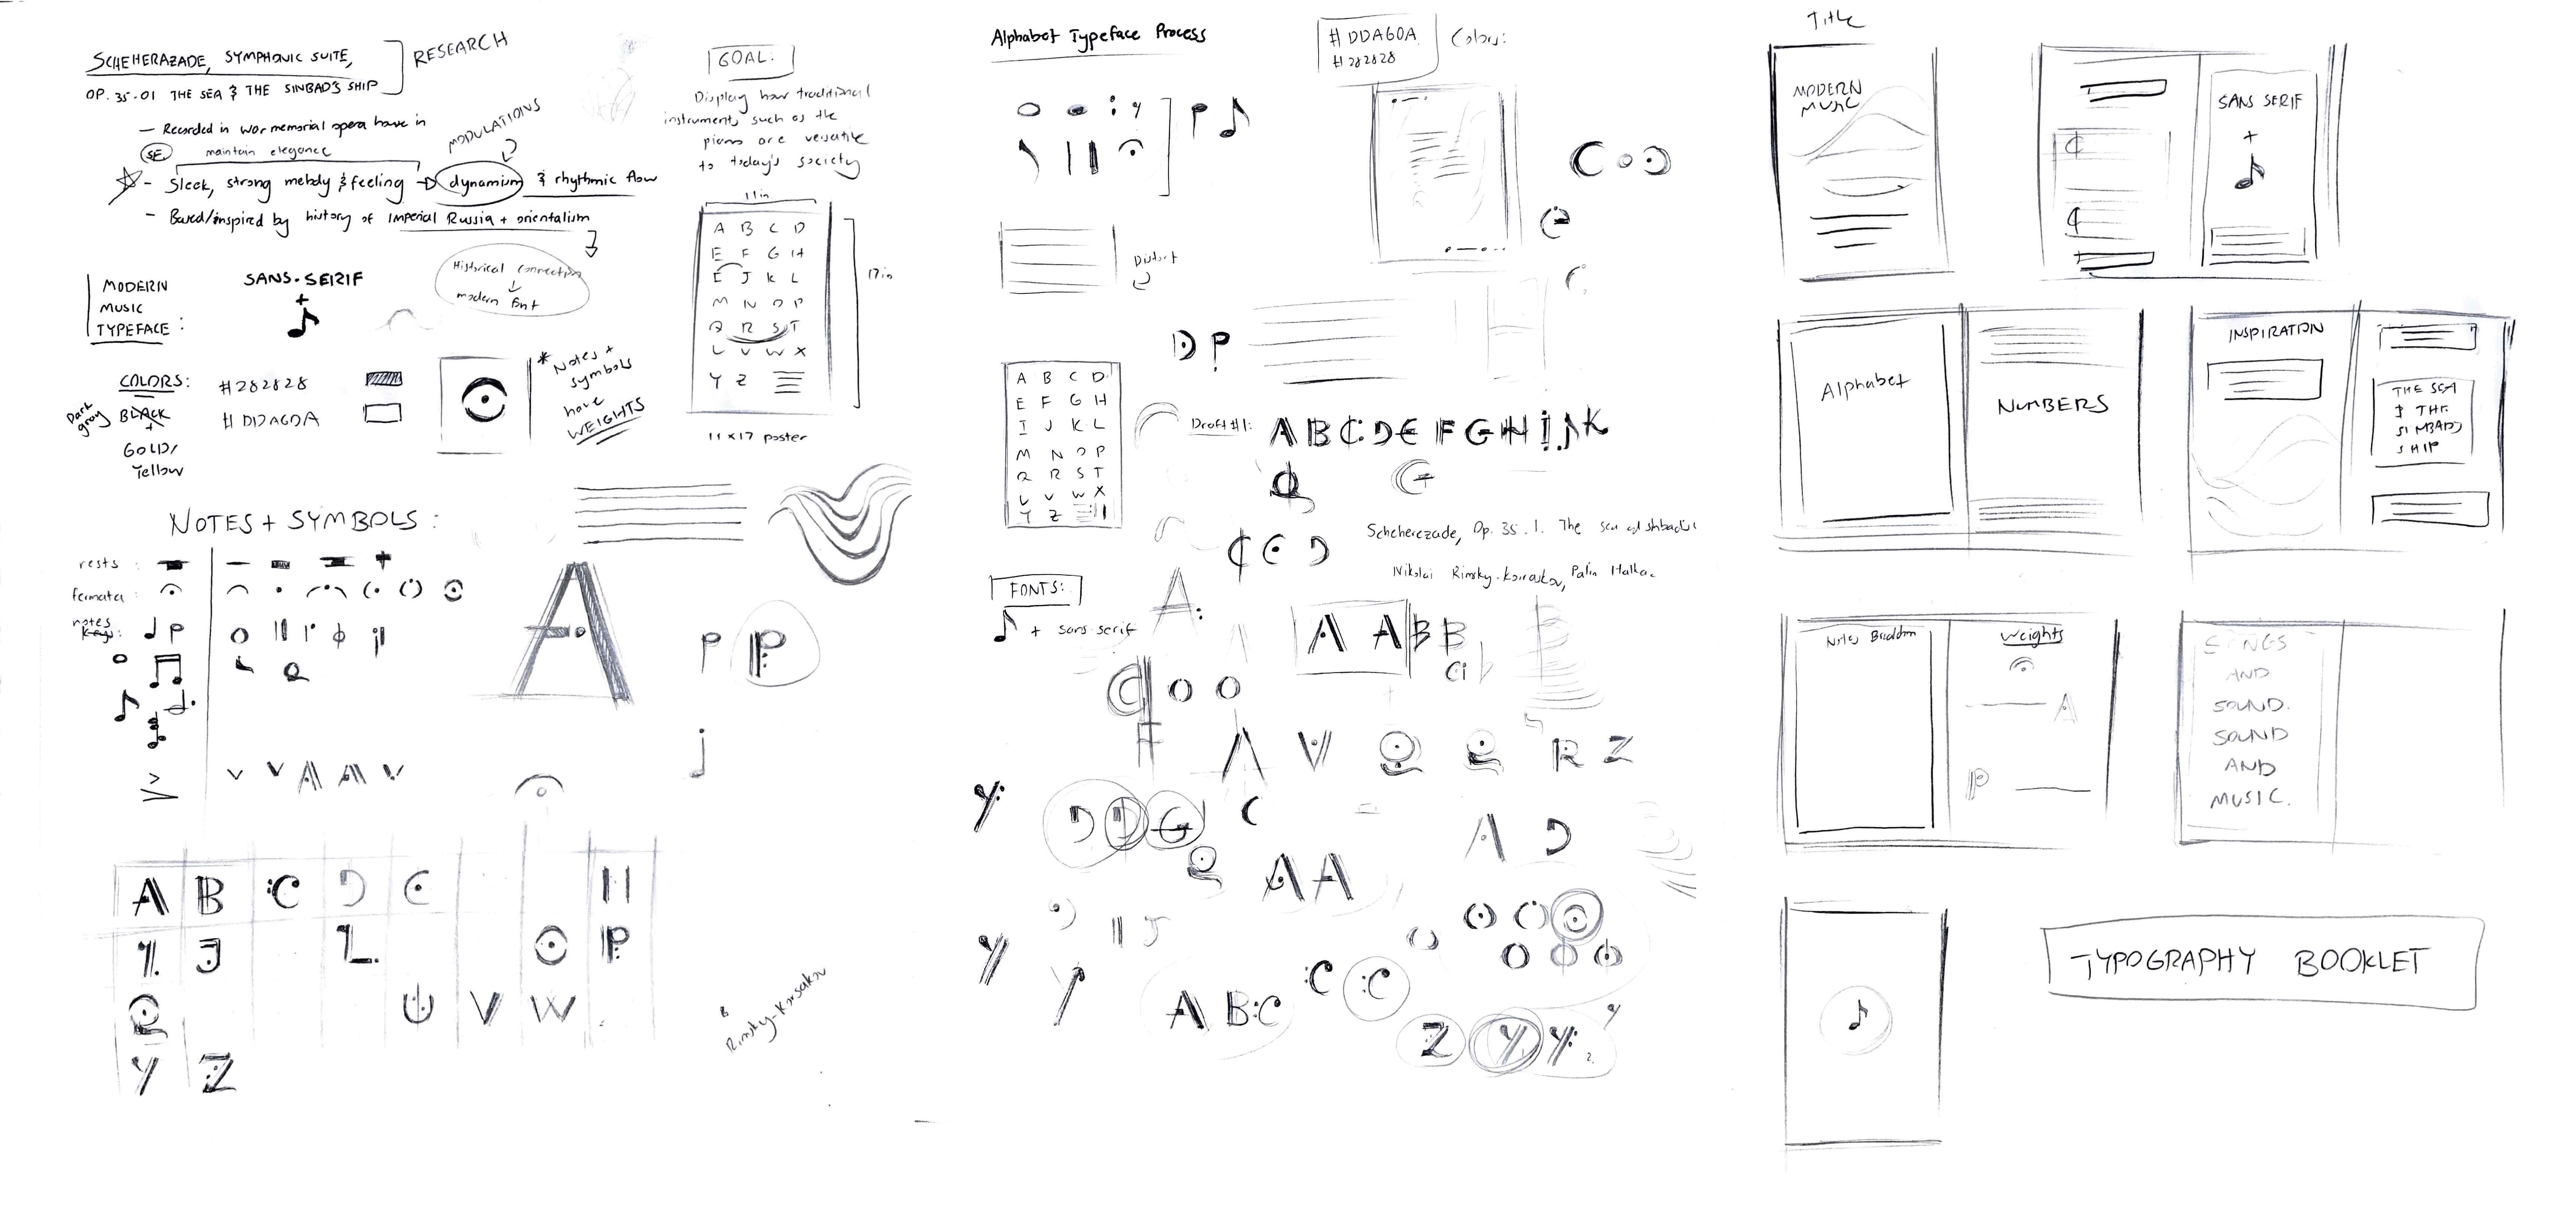 SCHEHERAZADE, SYMPHONIC SUITE,
OP. 35-01 THE SEA & THE SINBAD'S SHIP
RESEARCH
- Recorded in war memorial opera house in
SF.
maintain elegance
MODULATIONS
- Sleek, strong melody & feeling → dynamism & rhythmic flow
- Based/inspired by history of Imperial Russia + orientalism
Historical connection
↓
modern font
MODERN
MUSIC
TYPEFACE:
SANS-SERIF
+
COLORS:
#282828
Dark gray
BLACK
+
GOLD/
Yellow
#DDAGOA
* Notes +
symbols
have
WEIGHTS
GOAL:
Display how traditional
instruments such as the
piano are versatile
to today's society
11in
17in
A B C D
E F G H
E J K L
M N O P
Q R S T
U V W X
Y Z
11 x 17 poster
NOTES + SYMBOLS:
rests:
fermata:
notes
keys:
A
P P
j
V V A A V
A B C D C
J L P
Q U V W
Y Z
Rimsky-Korsakov
Alphabet Typeface Process
#DDAGOA
#282828
Colors:
Distort
D P
A B C D
E F G H
I J K L
M N O P
Q R S T
U V W X
Y Z
Draft #1:
A B C D E F G H I J K
Scheherezade, Op. 35. 1. The sea
Nikolai Rimsky-Korsakov,
FONTS:
+ sans serif
A A B B
A V Q Q R Z
Y D D G C
A D
A A
A B C C C
Z Y Y
Title
MODERN
MUSIC
SANS SERIF
+
Alphabet
NUMBERS
INSPIRATION
THE SEA
& THE
SINBADS
SHIP
Notes Breakdown
Weights
A
P
SONGS
AND
SOUND.
SOUND
AND
MUSIC.
TYPOGRAPHY BOOKLET